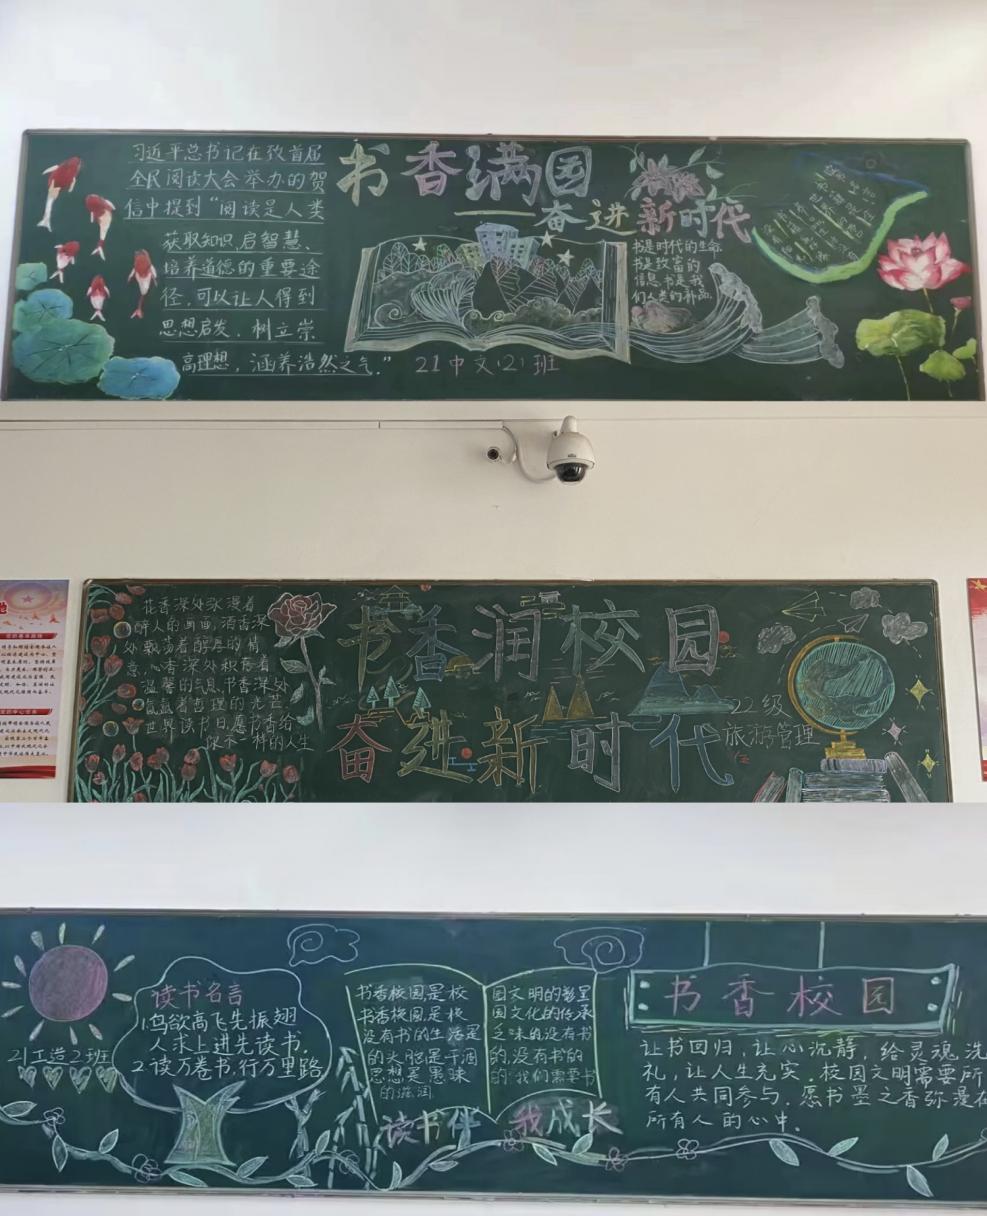 习近平总书记在致首届
全民阅读大会举办的贺
信中提到“阅读是人类
获取知识、启智慧、
培养道德的重要途
径,可以让人得到
思想启发,树立崇
高理想,涵养浩然之气。”
书香满园
——奋进新时代
书是时代的生命
书是致富的
信息书是我
们人类的补品
21中文(2)班
花香深处弥漫着
醉人的画面,酒香深
处飘荡着醇厚的情
意,心香深处积蓄着
温馨的气息,书香深处
氤氲着哲理的光芒
世界读书日,愿书香给
你不一样的人生
书香润校园
奋进新时代
22级
旅游管理
21工造2班
读书名言
1.鸟欲高飞先振翅
人求上进先读书.
2.读万卷书,行万里路
书香校园是校
书香校园是校
没有书的生活是
的头脑是干涸
思想是愚昧
的滋润
园文明的彰显
园文化的传承
乏味的没有书
的,没有书的
的,我们需要书
读书伴我成长
书香校园
让书回归,让心沉静,给灵魂洗
礼,让人生充实.校园文明需要所
有人共同参与.愿书墨之香弥漫在
所有人的心中.